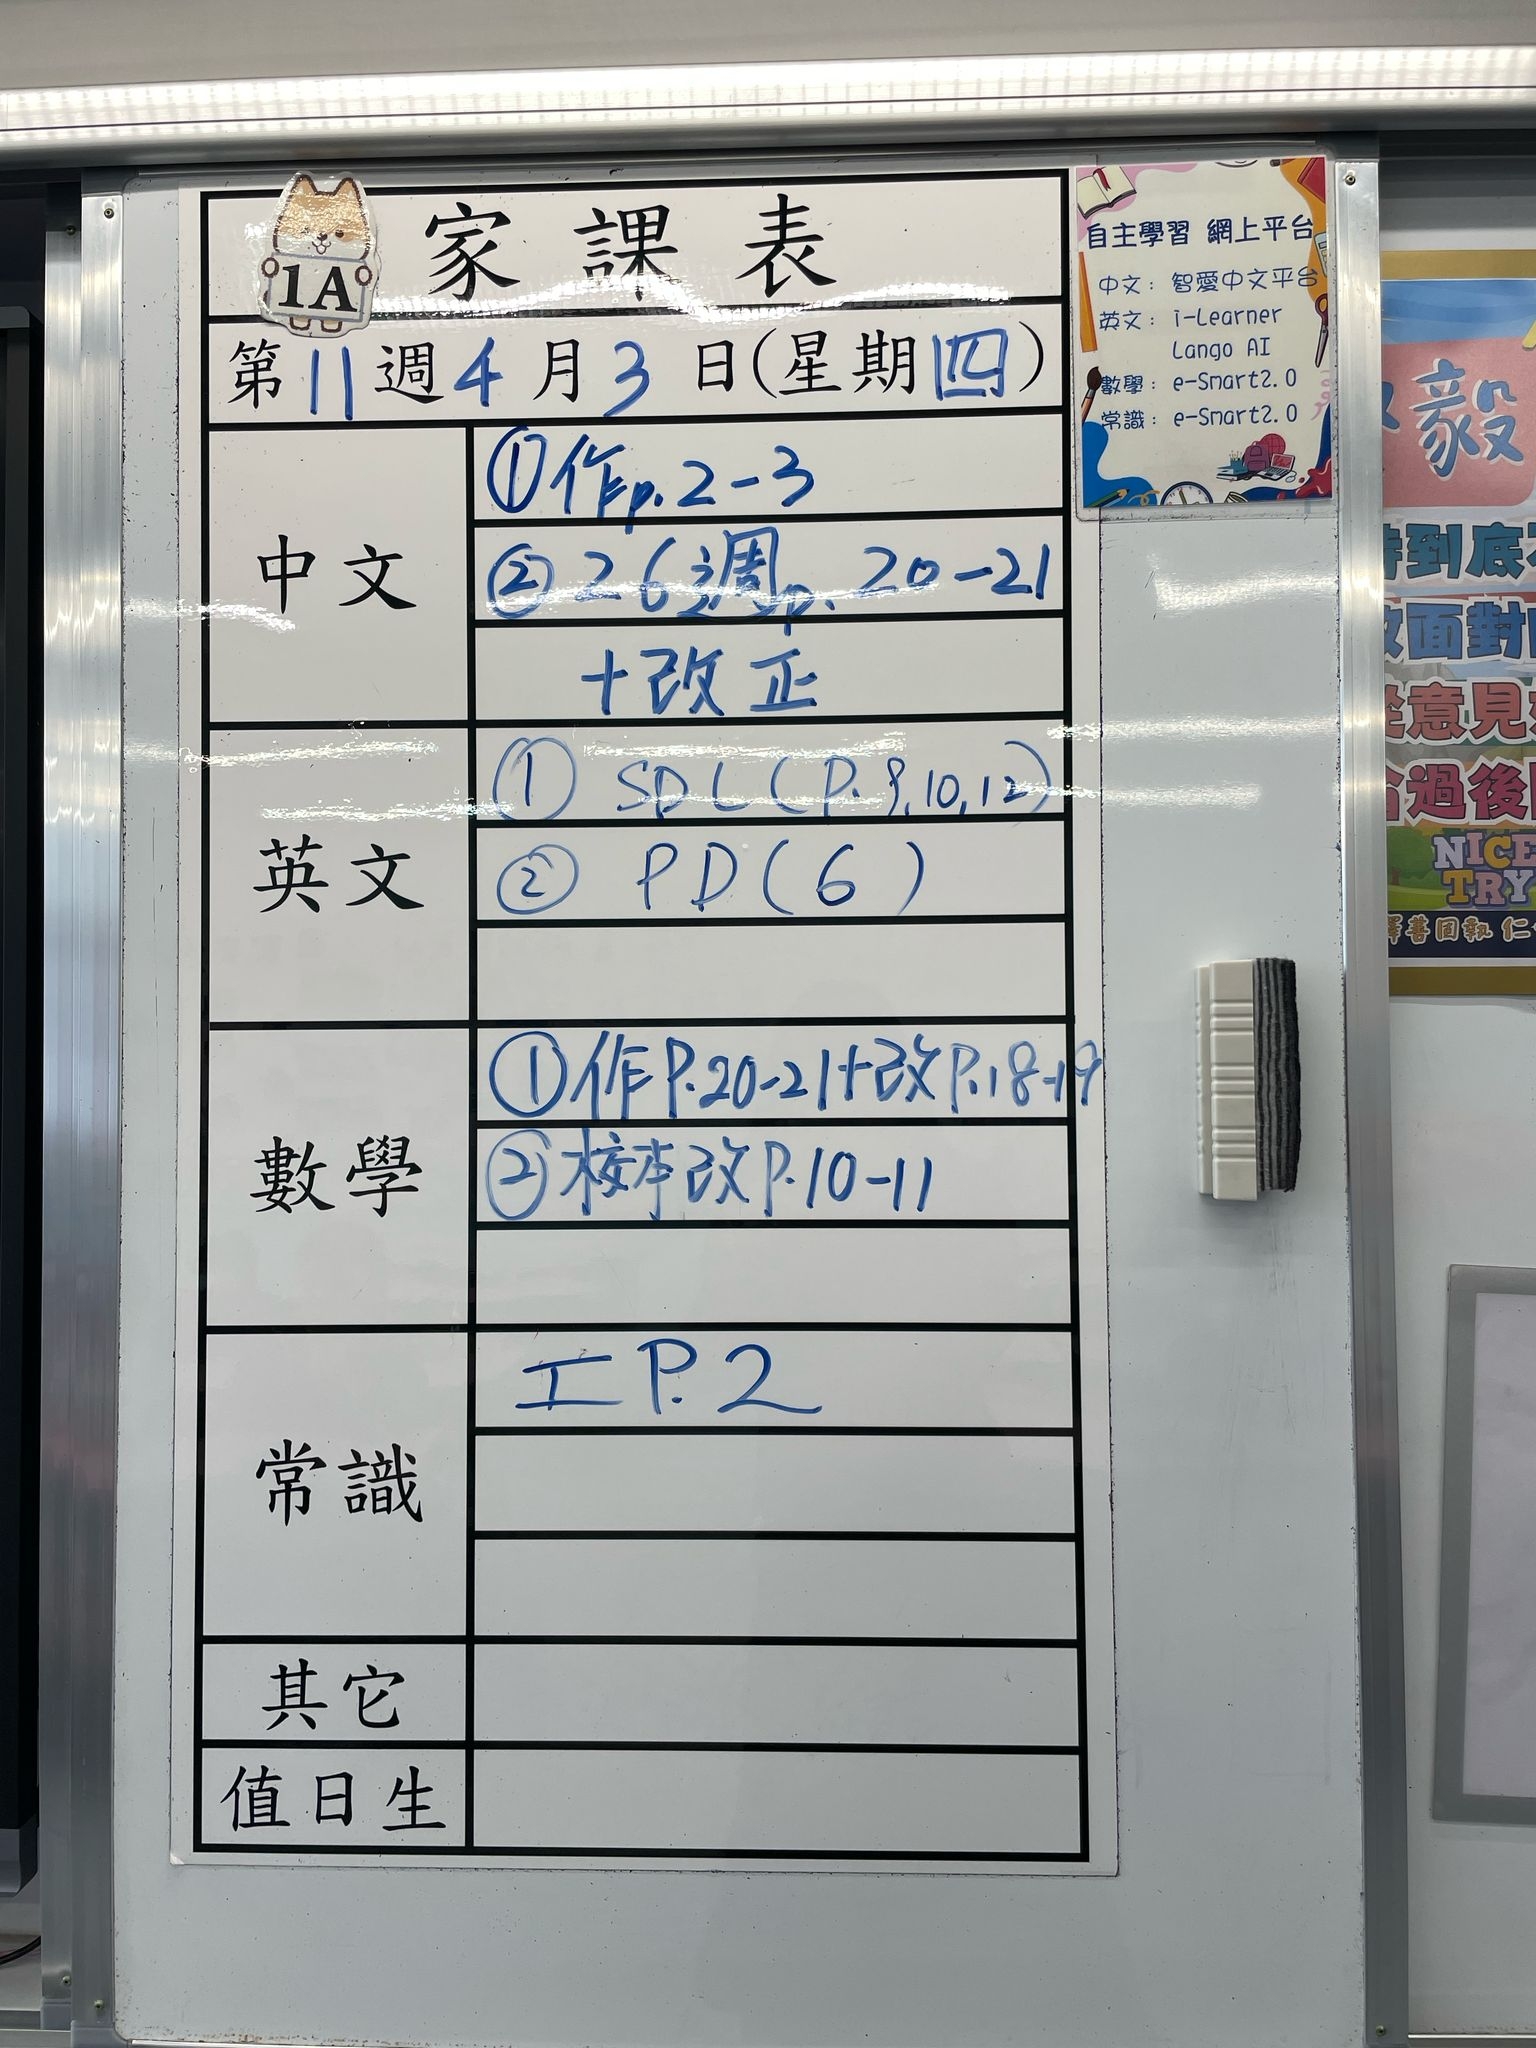 1A
家課表
第11週4月3日(星期四)
中文
①作p.2-3
②26週p.20-21
+改正
英文
① SDL(P.9,10,12)
② PD(6)
數學
①作P.20-21+改P.18-19
②校本改P.10-11
常識
工P.2
其它
值日生
自主學習 網上平台
中文：智愛中文平台
英文：i-Learner
Lango AI
數學：e-Smart2.0
常識：e-Smart2.0
毅
到底
面對
意見
過後
NICE
TRY
擇善固執 仁